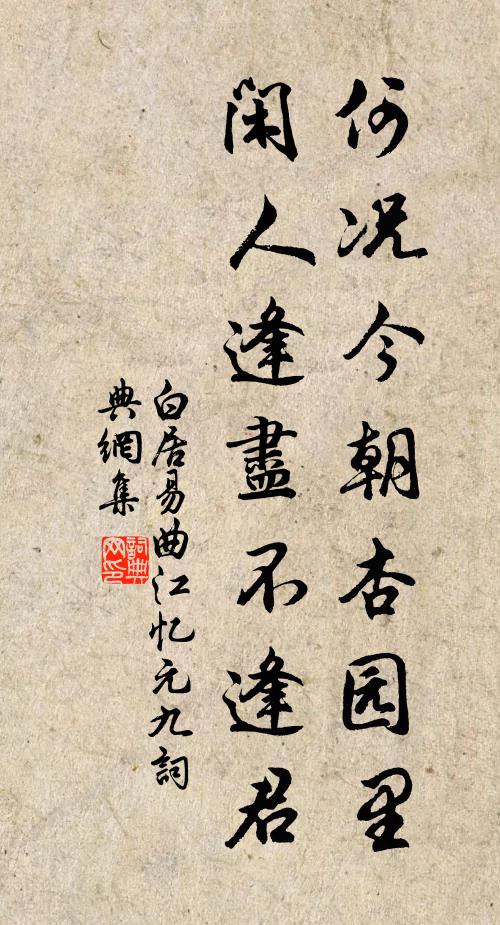 何况今朝杏园里
闲人逢盡不逢君
白居易曲江忆元九詞
典網集
詞典网印